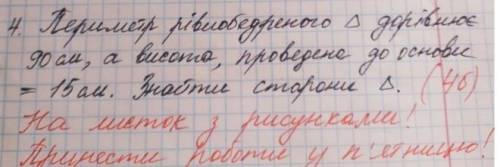 4. Периметр рівнобедреного △ дорівнює
90 см, а висота, проведена до основи
= 15 см. Знайти сторони △. (4б)
На листок з рисунками!
Принести роботи у п'ятницю!